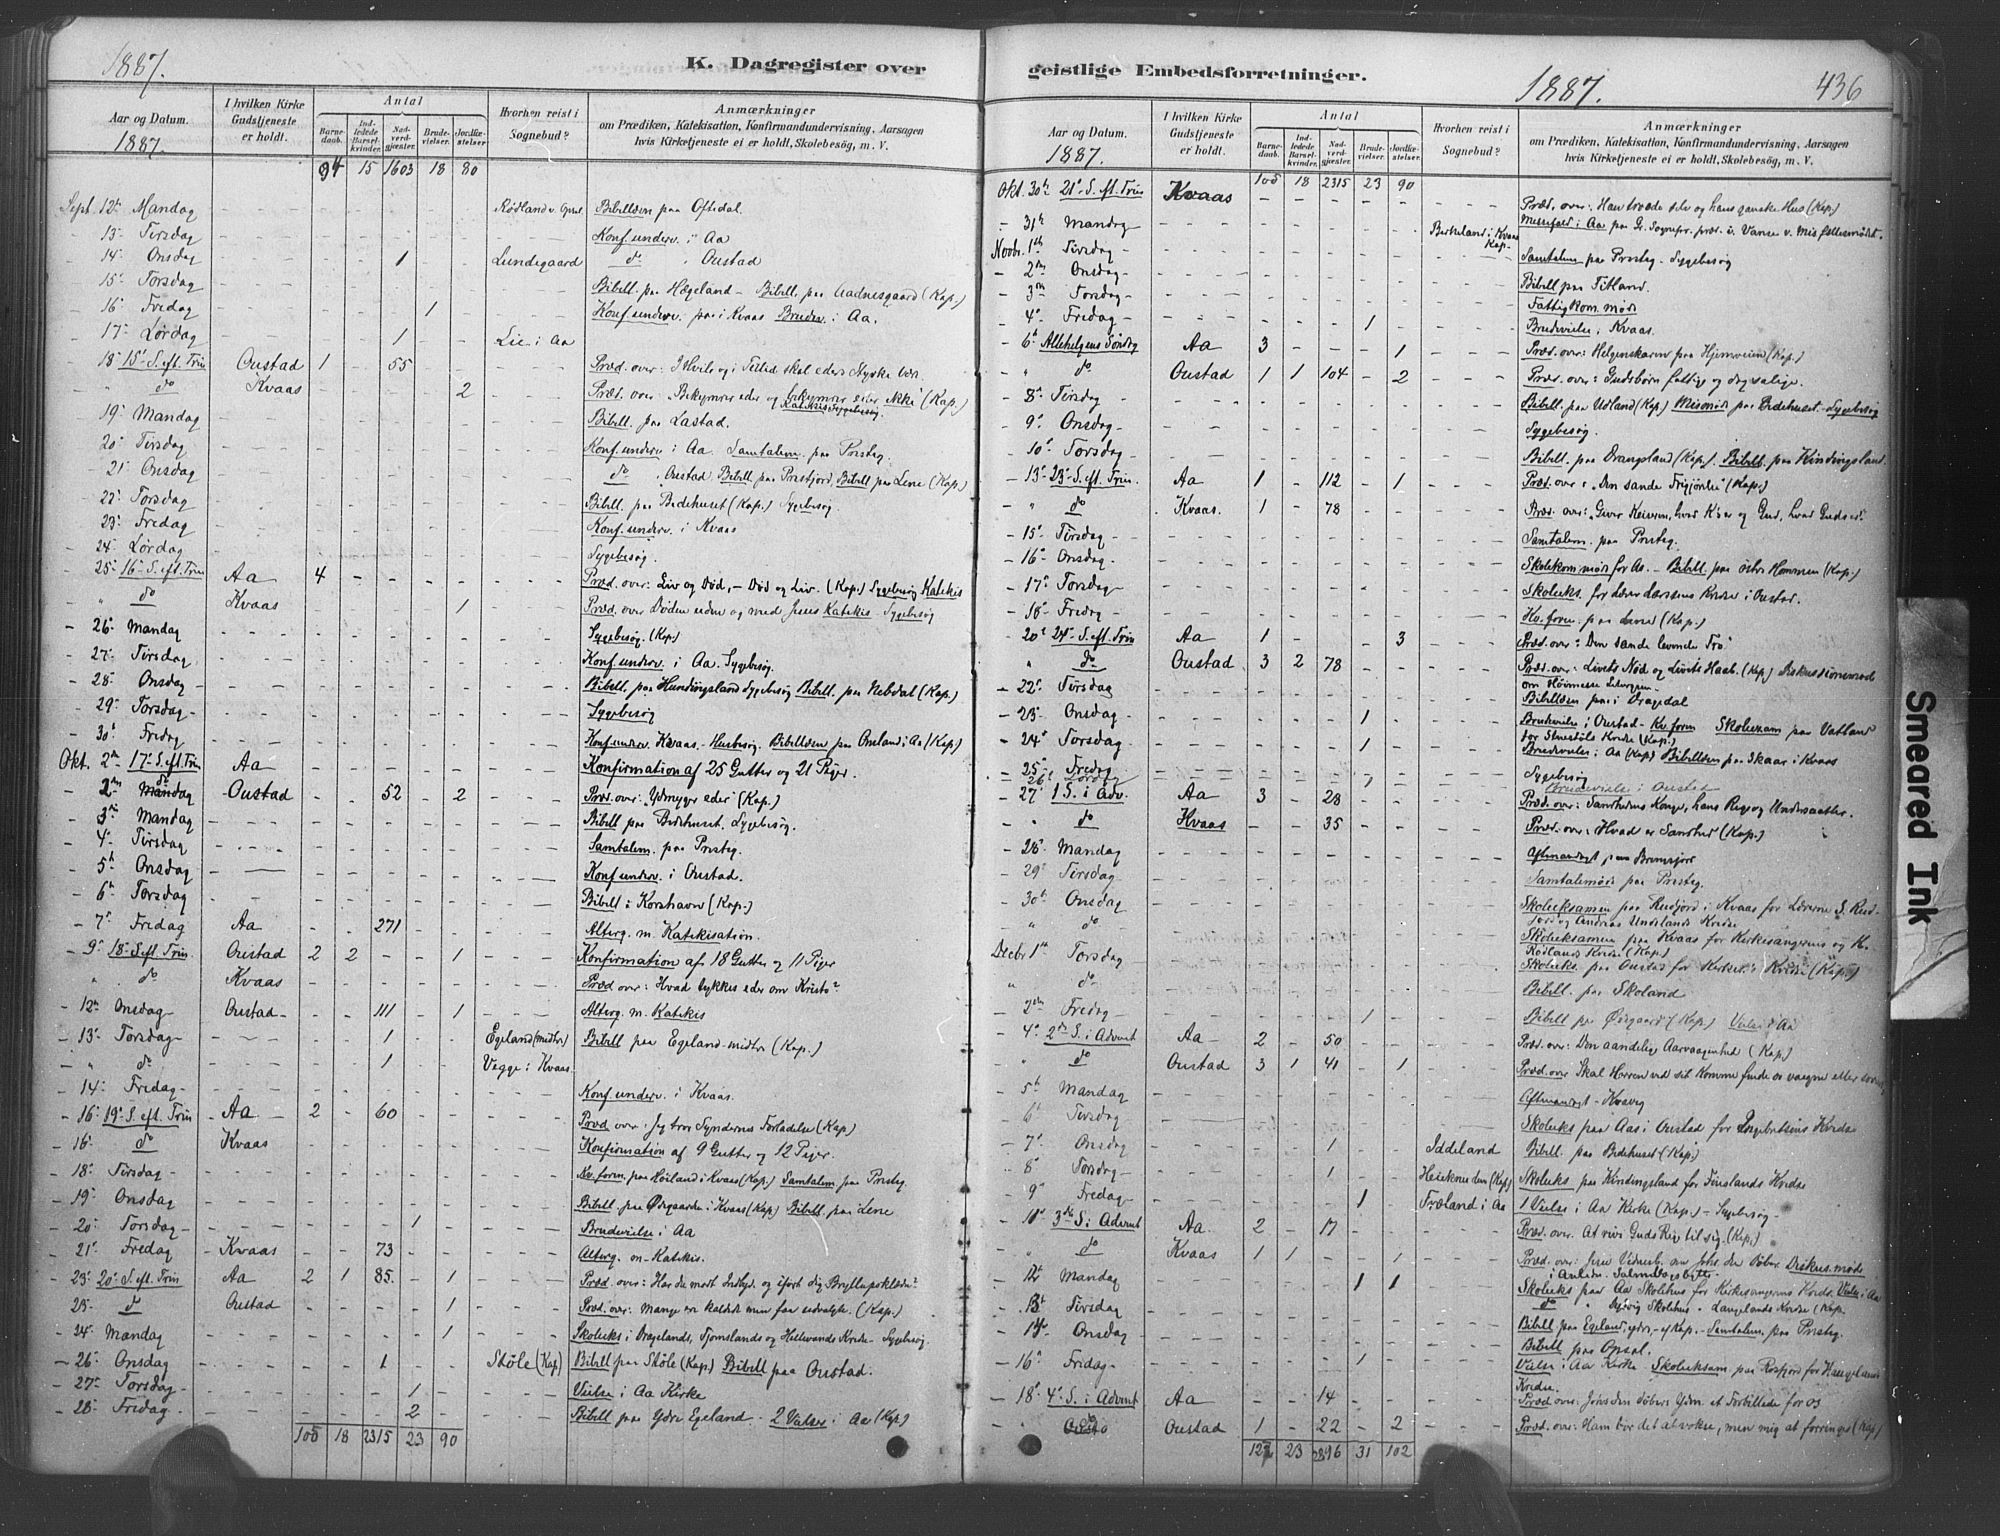 1887.
K. Dagregister over
Aar og Datum.
1887.
I hvilken Kirke
Gudstjeneste
er holdt.
Antal
Barne-
daab.
Ind-
ledede
Barsel-
kvinder.
Nad-
verd-
gjæster.
Brude-
vielser.
Jordfæ-
stelser
Hvorhen reist i
Sognebud?
Anmærkninger
om Prædiken, Katekisation, Konfirmandundervisning, Aarsagen
hvis Kirketjeneste ei er holdt, Skolebesøg, m. V.
94 15 1603 18 80
Sept. 12te Mandag - - - - - Bibellæsn paa Oftedal
- 13 Tirsdag - - - - - Konf. underv. i Aa
- 14 Onsdag - - 1 - - Lundegaard do " Oustad
- 15 Torsdag - - - - - Bibell. paa Hægeland - Bibell. paa Aadnesgaard (Kap)
- 16 Fredag - - - 1 - Konf. underv. i Kvaas Brudev. i Aa.
- 17 Lørdag - - 1 - - Lie i Aa
- 18 15 S. eft. Trin Oustad 1 - 55 - - Præd. over: I Hvile og i Tillid skal eders Styrke vær.
" do Kvaas - - - - 2 Præd. over "Bekymrer eder og bekymrer eder ikke" (Kap)
- 19 Mandag - - - - - Bibell. paa Lastad.
- 20 Tirsdag - - - - - Konf. underv. i Aa. Samtalem. paa Prsteg.
- 21 Onsdag - - - - - do " Oustad Bibell paa Prestjord Bibell paa Lene (Kap)
- 22 Torsdag - - - - - Bibell. paa Bedehuset (Kap.) Sygebesøg.
- 23 Fredag - - - - - Konf. underv. i Kvaas
- 24 Lørdag - - - - - Sygebesøg.
- 25 16 S. eft. Trin Aa 4 - - - - Præd. over: Liv og Død, - Død og Liv. (Kap) Sygebesøg Katekis
" do Kvaas - - - - 1 Præd. over Døden uden og med Jesus Katekis - Sygebesøg
- 26 Mandag - - - - - Sygebesøg. (Kap)
- 27 Tirsdag - - - - - Konf. underv. i Aa. Sygebesøg.
- 28 Onsdag - - - - - Bibell. paa Hundingsland Sygebesøg Bibell. paa Nebdal (Kap)
- 29 Torsdag - - - - - Sygebesøg
- 30 Fredag - - - - - Konf. underv. Kvaas - Husbesøg. Bibellæsn paa Omland i Aa (Kap)
Okt. 2n 17 S. eft. Trin Aa - - - - - Konfirmation af 25 Gutter og 21 Piger.
- 2n do Oustad - - 52 - 2 Præd. over: "Ydmyger eder" (Kap.)
- 3die Mandag - - - - - Bibell paa Bedehuset. Sygebesøg.
- 4 Tirsdag - - - - - Samtalem. paa Prsteg.
- 5 Onsdag - - - - - Konf. underv. i Oustad.
- 6 Torsdag - - - - - Bibell i Korshavn (Kap.)
- 7 Fredag Aa - - 271 - - Alterg. m. Katekisation.
- 9 18 S. eft. Trin. Oustad 2 2 - - 1 Konfirmation af 18 Gutter og 11 Piger
" do Kvaas - - - - - Præd over: Hvad tykkes eder om Kristo?
- 12 Onsdag Oustad - - 111 - 1 Alterg. m. Katekis
- 13 Torsdag - - 1 - - Egeland (midtre) Bibell paa Egeland - midtre (Kap.)
" do - - 1 - - Vegge i Kvaas
- 14 Fredag - - - - - Konf. underv. i Kvaas.
- 16 19 S. eft. Trin Aa 2 - 60 - - Præd over: Jeg tror Syndernes Forladelse (Kap)
- 16 do Kvaas - - - - - Konfirmation af 9 Gutter og 12 Piger.
- 18 Tirsdag - - - - - Kv. foren. paa Høiland i Kvaas (Kap) Samtalem paa Prsteg.
- 19 Onsdag - - - - - Bibell. paa Ørgaarden i Kvaas (Kap) Bibell. paa Lene
- 20 Torsdag - - - 1 - Brudevielse i Aa
- 21 Fredag Kvaas - - 73 - - Alterg. m. Katekis.
- 23 20 S. eft. Trin Aa 2 1 85 - 1 Præd. over: Har du mødt Indbyd. og iført dig Bryllupsklæder?
- 23 do Oustad - - - - 1 Præd. over: Mange ere kaldede men faa udvalgte. (Kap)
- 24 Mandag - - - - 1 Skoleeks i Dragelands, Tjomslands og Hellvands Kredse - Sygebesøg
- 26 Onsdag - - 1 - - Støle (Kap) Bibell paa Støle (Kap) Bibell paa Oustad.
- 27 Torsdag - - - 1 - Vielse i Aa Kirke
- 28 Fredag - - - 2 - Bibell paa Ydre Egeland - 2 Vielser i Aa (Kap)
105 18 2315 23 90
geistlige Embedsforretninger.
1887.
436
Aar og Datum.
1887.
I hvilken Kirke
Gudstjeneste
er holdt.
Antal
Barne-
daab.
Ind-
ledede
Barsel-
kvinder.
Nad-
verd-
gjæster.
Brude-
vielser.
Jordfæ-
stelser.
Hvorhen reist i
Sognebud?
Anmærkninger
om Prædiken, Katekisation, Konfirmandundervisning, Aarsagen
hvis Kirketjeneste ei er holdt, Skolebesøg, m. V.
105 18 2315 23 90
Okt. 30te 21 S. eft. Trin Kvaas - - - - - Præd. over: Han troede selv og hans ganske Hus (Kap)
- 31te Mandag - - - - - Birkeland i Kvaas Kap.
Novbr. 1ste Tirsdag - - - - - Samtalem paa Prsteg - Sygebesøg
- 2n Onsdag - - - - - Bibell paa Titland.
- 3die Torsdag - - - - - Fattigkom. møde
- 4 Fredag - - - 1 - Brudevielse i Kvaas.
- 6 Allehelgens Søndag Aa 3 - - - 1 Præd. over: Helgenskaren paa Hjemveien (Kap)
" do Oustad 1 1 104 - 2 Præd. over: Gudsbørn fattige og dog salige.
- 8 Tirsdag - - - - - Bibell. paa Udland (Kap) Mismøde paa Bedehuset - Sygebesøg
- 9 Onsdag - - - - - Sygebesøg.
- 10 Torsdag - - - - - Bibell. paa Drangsland (Kap.) Bibell. paa Kindingsland.
- 13 23 S. eft. Trin. Aa 1 - 112 - 1 Præd. over: "Den sande Frigjørelse" (Kap)
" do Kvaas. 1 - 78 - - Præd. over: "Giver Keiseren, hvad Ks er og Gud, hvad Guds er"
- 15 Tirsdag - - - - - Samtalem. paa Prsteg.
- 16 Onsdag - - - - - Skolekom. møde for Aa. - Bibell. paa østre Hommen (Kap)
- 17 Torsdag - - - - - Skoleeks. for Lærer Larssens Kredse i Oustad.
- 18 Fredag - - - - - Kv. foren. paa Lene (Kap.)
- 20 24 S. eft. Trin Aa 1 - - - 3 Præd. over: Den sande levende Tro
" do Oustad 3 2 78 - - Præd. over: Livets Nød og Livets Haab. (Kap) Diskussionsmøde
om Høimesse Liturgien -
- 22 Tirsdag - - - - - Bibellæsn paa i Dragedal
- 23 Onsdag - - - 1 - Brudevielse i Oustad - Kv. foren Skoleexam paa Vatland
for Stuestøls Kredse (Kap.)
- 24 Torsdag - - - 1 - Brudevielse i Aa (Kap) Bibellæsn paa Skaar i Kvaas
- 25 Fredag - - - - - Sygebesøg
26 Lørdag - - - 1 - Brudevielse i Oustad
- 27 1 S. i Adv. Aa 3 - 28 - - Præd. over: Sandhedens Konge, hans Rige og Undersaatter.
" do Kvaas - - 35 - - Præd. over: Hvad er Sandhed (Kap.)
- 28 Mandag - - - - - Aftenandagt paa
- 29 Tirsdag - - - - - Samtalemøde paa Prsteg.
- 30 Onsdag - - - - - Skoleeksamen paa Rudjord i Kvaas for Lærerne S. Rud-
jord og Andreas Undslands Kredse
" do - - - - - Skoleeksamen paa Kvaas for Kirkesangerens og K.
Rødlands Kredse (Kap)
Decbr 1ste Torsdag - - - - - Skoleeks. paa Oustad for Kirkes. Kredse (Kap.)
" do - - - - - Bibell. paa Skoland
- 2den Fredag - - - 1 - Bibell paa Ørgaard (Kap) Vielse i Aa
- 4 2den S. i Advent Aa 2 - 50 - - Præd. over: Den aandelige Aarvaagenhed (Kap)
" do Oustad 3 1 41 - 1 Præd. over Skal Herren ved sit Komme finde os vaagne eller sovende
- 5 Mandag - - - - - Aftenandagt - Kvaveg
- 6 Tirsdag - - - - - Skoleeks paa Aas i Oustad for Ingebretsens Kredse
- 7 Onsdag - - 1 - - Iddeland Bibell. paa Bedehuset (Kap.)
- 8 Torsdag - - 1 - - (Kap) Skoleeks paa Kindingsland for Kredse
- 9 Fredag - - - 1 - Fræland i Aa 1 Vielse i Aa Kirke (Kap) - Sygebesøg -
- 10 3die S. i Advent Aa 2 - 17 - - Præd. over: At rive Guds Rige til sig. (Kap.)
" do Kvaas 1 1 - - 1 Præd. over: Jesu Vidnesb. om Johs. den Døber Diskus. møde
i Anledn. Salmebogsbytte
- 12 Mandag - - - 1 1 Skoleeks paa Aa Skolehus for Kirkesangerens Kreds. Vielse i Aa
- 13 Tirsdag - - - - - do " Skolehus " Langlands Kredse (Kap.
- 14 Onsdag - - - - - Bibell paa Egeland, ydre - af Kap. - Samtalem. paa Prsteg.
Bibell paa Opsal.
- 16 Fridag - - - 1 - Vielse i Aa Kirke Skoleeksam. paa Rosfjord for Haugelands
Kredse.
- 18 4 S. i Advent Aa - - 14 - - Præd over: Johs den Døbers Ydm. et Forbillede for os
" do Oustad 1 - 22 - 2 Præd. over: Ham bør det at vokse, men mig at forringes (Kap)
127 23 2896 31 102
Smeared Ink